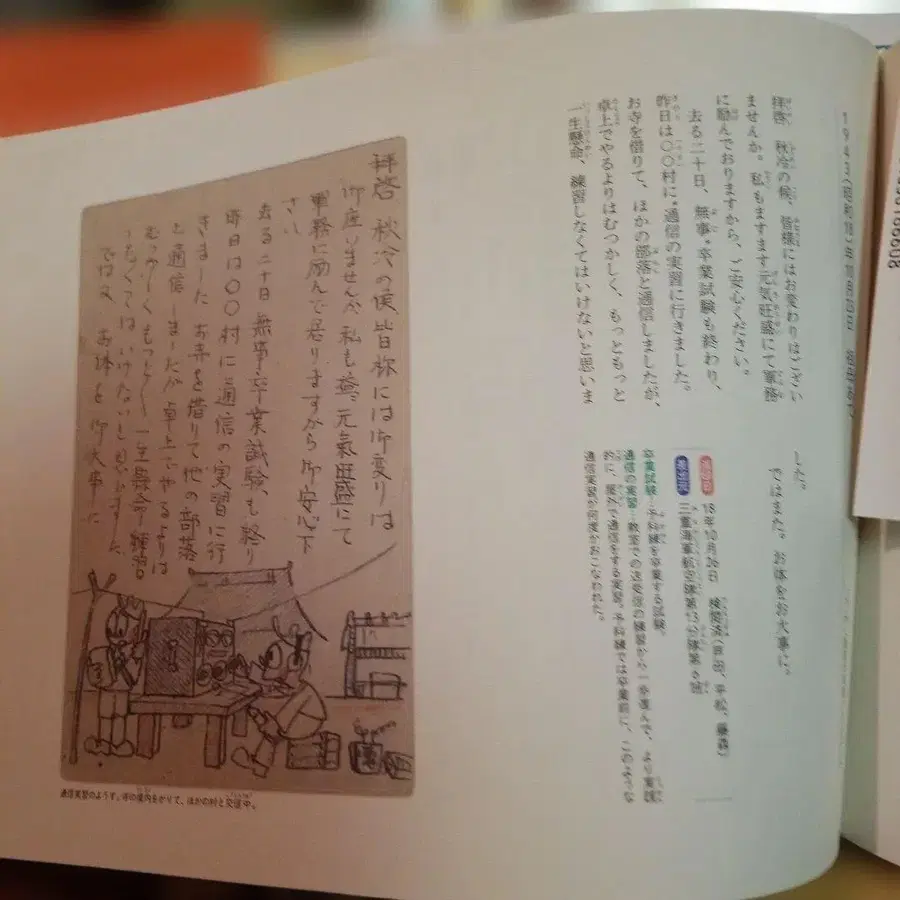 1943(昭和18)年10月25日
拝啓 秋冷の候、皆様にはお変わりはござい
ませんか。私もますます元気旺盛にて軍務
に励んでおりますから、ご安心ください。
去る二十日、無事、卒業試験も終わり、
昨日は〇〇村に、通信の実習に行きました。
お寺を借りて、ほかの部落と通信しましたが、
卓上でやるよりはむつかしく、もっともっと
一生懸命、練習しなくてはいけないと思いま
した。
ではまた。お体をお大事に。
18年10月26日 検閲済
三重海軍航空隊第13分隊第6班
卒業試験…予科練を卒業する試験。
通信の実習…教室での送受信の練習から一歩進んで、より実践
的に、屋外で通信をする実習。予科練では卒業前に、このような
通信実習が何度かおこなわれた。
拝啓 秋冷の候皆様には御変りは
御座いませんか 私も益々元氣旺盛にて
軍務に励んで居りますから御安心下
さい
去る二十日無事卒業試験も終り
昨日は〇〇村に通信の実習に行
きました お寺を借りて他の部落
と通信しましたが卓上でやるよりは
むつかしくもっと〱一生懸命練習
しなくてはいけないと思いました
では又 お体を御大事に
通信実習のようす。寺の境内をかりて、ほかの村と交信中。